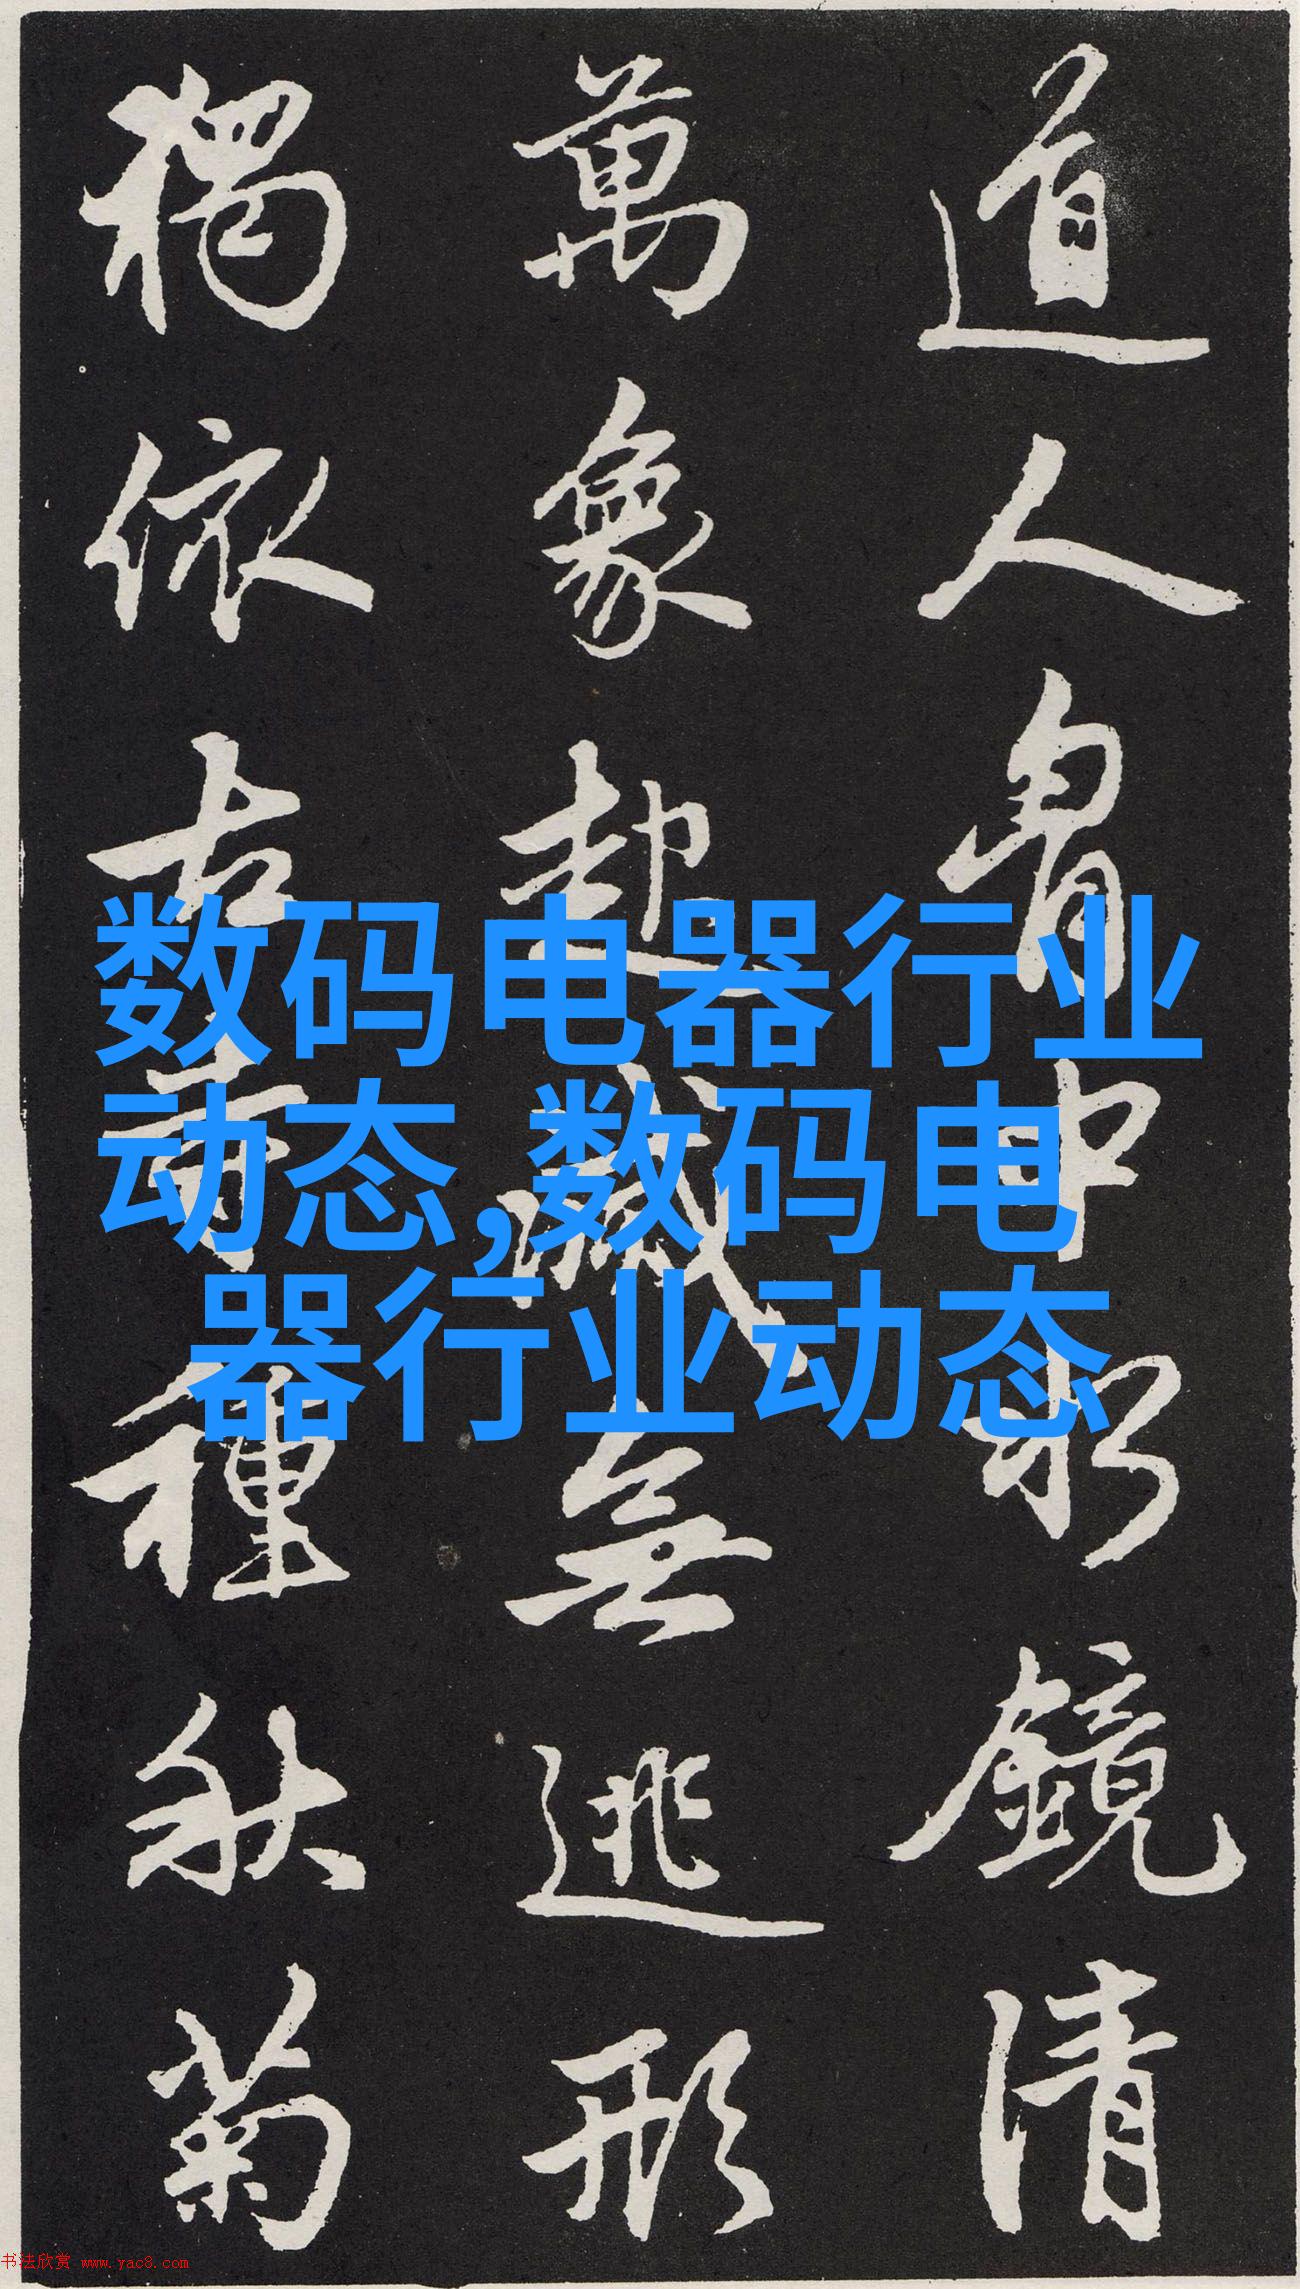 道人胷中水鏡清
萬象起滅無逃形
獨依古寺種秋菊
数码电器行业
动态,数码电
器行业动态
书法欣赏 www.yac8.com